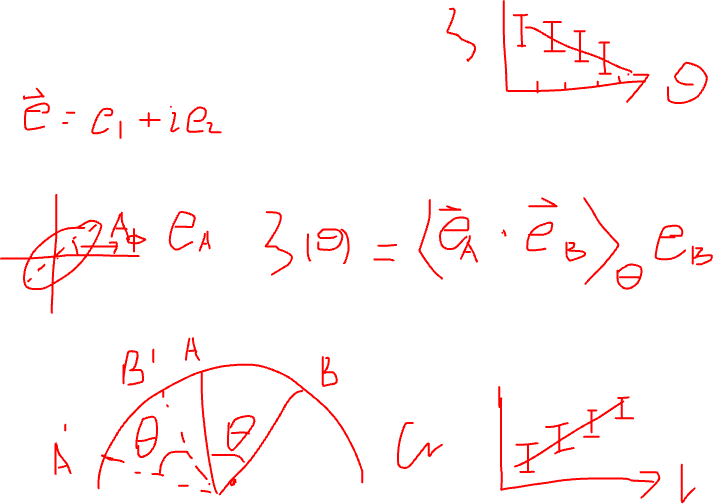 ξ θ
e⃗ = e₁ + ie₂
A ϕ e_A ξ(θ) = ⟨e⃗_A · e⃗_B⟩_θ e_B
B' A B
A' θ θ l